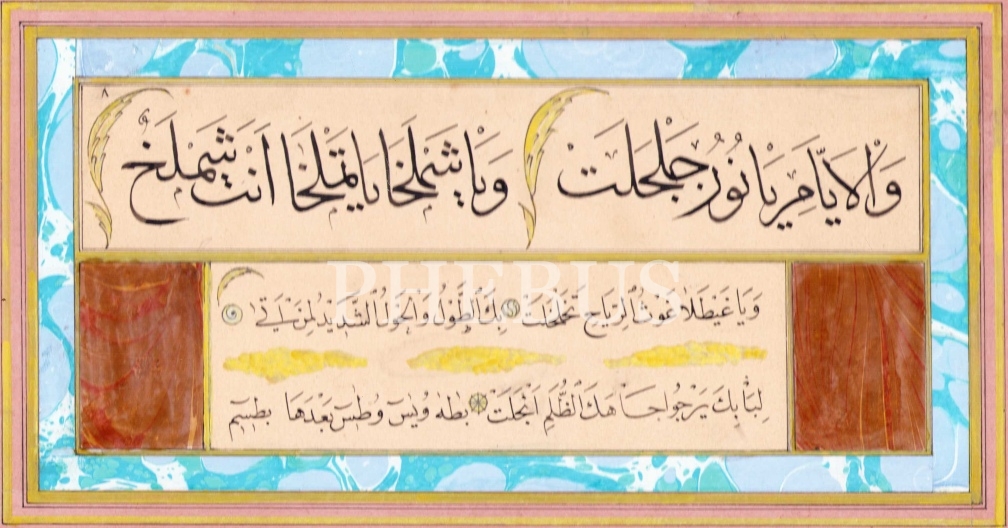 ٨
والايا مريا نور جلجلت ويا شملخا يا تملخا انت شيملخ
PHEBUS
ويا غيطلا غوث الرياح تخلخلت بك الطول والحول الشديد لمن يأتي
لبابك يرجوا جاهك الظلم انجلت بطه ويس وطس بعدها بطسم